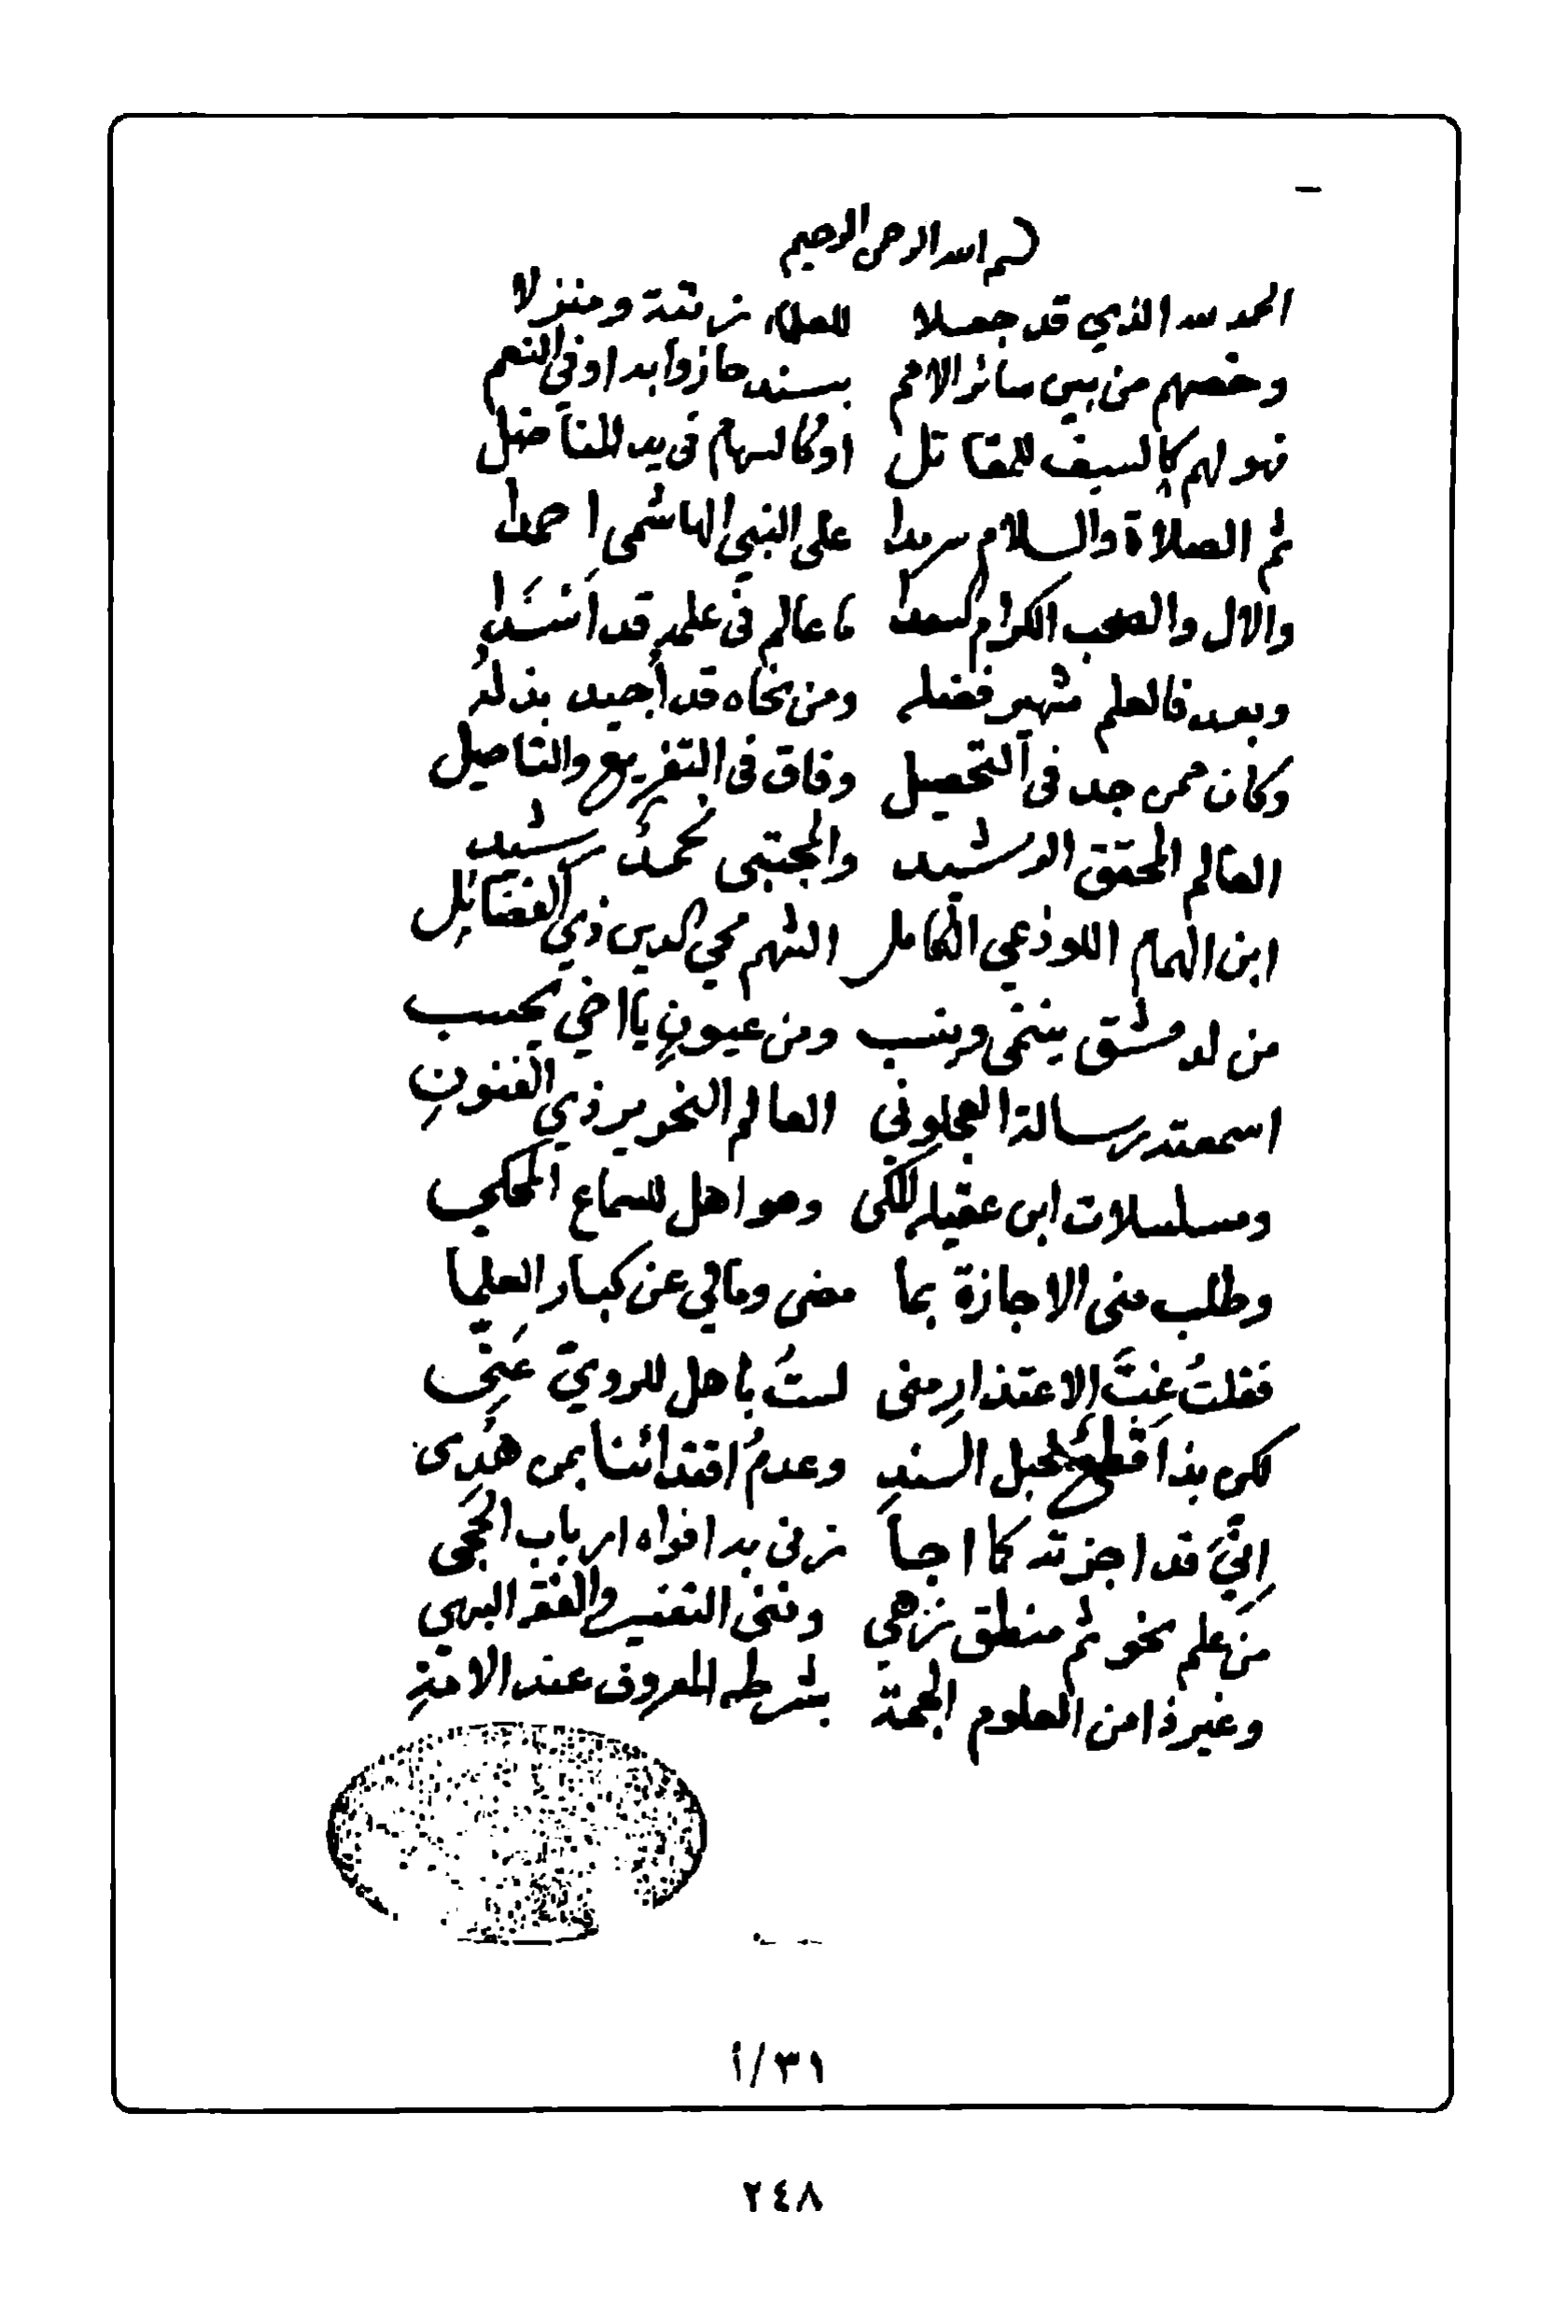 بسم الله الرحمن الرحيم
الحمد لله الذي قد جعلا للعلماء زينة ومنزلا
وخصهم من بين سائر الامم بسند حازوا به اوفى النعم
فهو لهم كالسيف للمقاتل اوكالسهام في يد المناضل
ثم الصلاة والسلام سرمدا على النبي الهاشمي احمدا
والال والصحب الكرام السعدا ما عالم في علمه قد أسندا
وبعد فالعلم شهير فضله ومن نحاه قد أجيد بذله
وكان ممن جد في التحصيل وفاق في التفريع والتاصيل
العالم المحقق الرشيد والمجتبى محمد رشيد
ابن الهمام اللوذعي الكامل الشهم محي الدين ذي الفضائل
من لدمشق ينتمي وينسب ومن عيونٍ يا اخي يحسب
اسمعته رسالة العجلوني العالم النحرير ذي الفنونِ
ومسلسلات ابن عقيله المكي وهو اهل للسماع المحكي
وطلب مني الاجازة بما مضى ومالي عن كبار العلما
فقلتُ غبَّ الاعتذارِ مني لستُ باهل للرويّ عنّي
لكن بذا قطعُ لحبل السندِ وعدمُ اقتدائنا بمن هُدِى
إنيَّ قد اجزته كما اجا زني به افواه ارباب الحجى
من علم نحو ثم منطق زهي وفني التفسير والفقه البهي
وغير ذا من العلوم الجمة بشرطه المعروف عند الامةِ
٣١/أ
٢٤٨